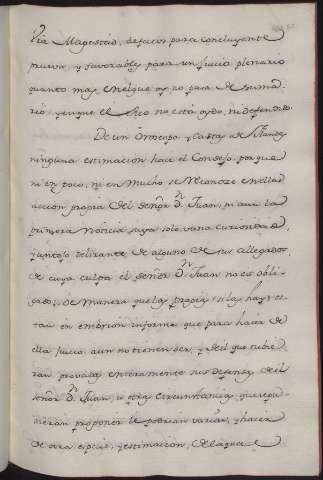 Vra Magestad, defectos para concluyente
prueva, y favorables para un juicio plenario
quanto mas en el que oy no para de suma-
rio, y en que el Reo no está oydo, ni defendido.
De un Oroscopo, y Cartas de Flandes
ninguna estimacion hace el Consejo, porque
ni en poco, ni en Mucho se reconoze en ellas
accion propria del señor Dn. Juan, ni aun la
primera noticia suya solo varia curiosidad,
y antojo delirante de alguno de sus allegados,
de cuya culpa el señor Dn. Juan no es obli-
gado; de manera que las propias si las hay es-
tan en embrion informe que para hacer de
ella juicio, aun no tienen ser, y del que tubie-
ran provadas enteramente sus defensas del
señor Dn. Juan, u otras circunstancias que se pu-
dieran proponer le podrian variar, y hacer
de otra especie, y estimacion, de la que